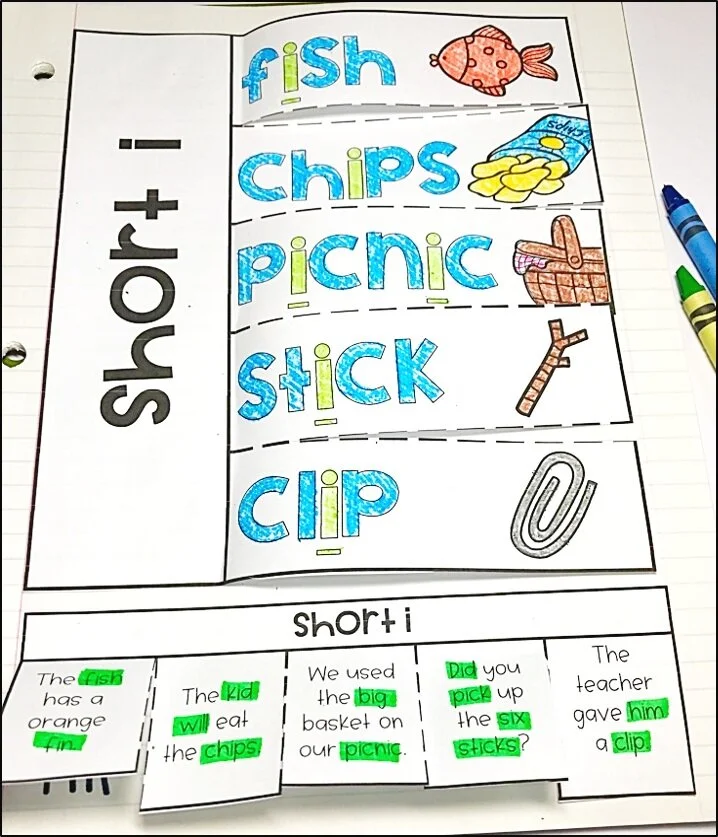 Short i
fish
chips
CHIPS
picnic
stick
clip
Short i
The fish
has a
orange
fin.
The kid
will eat
the chips.
We used
the big
basket on
our picnic.
Did you
pick up
the six
sticks?
The
teacher
gave him
a clip.